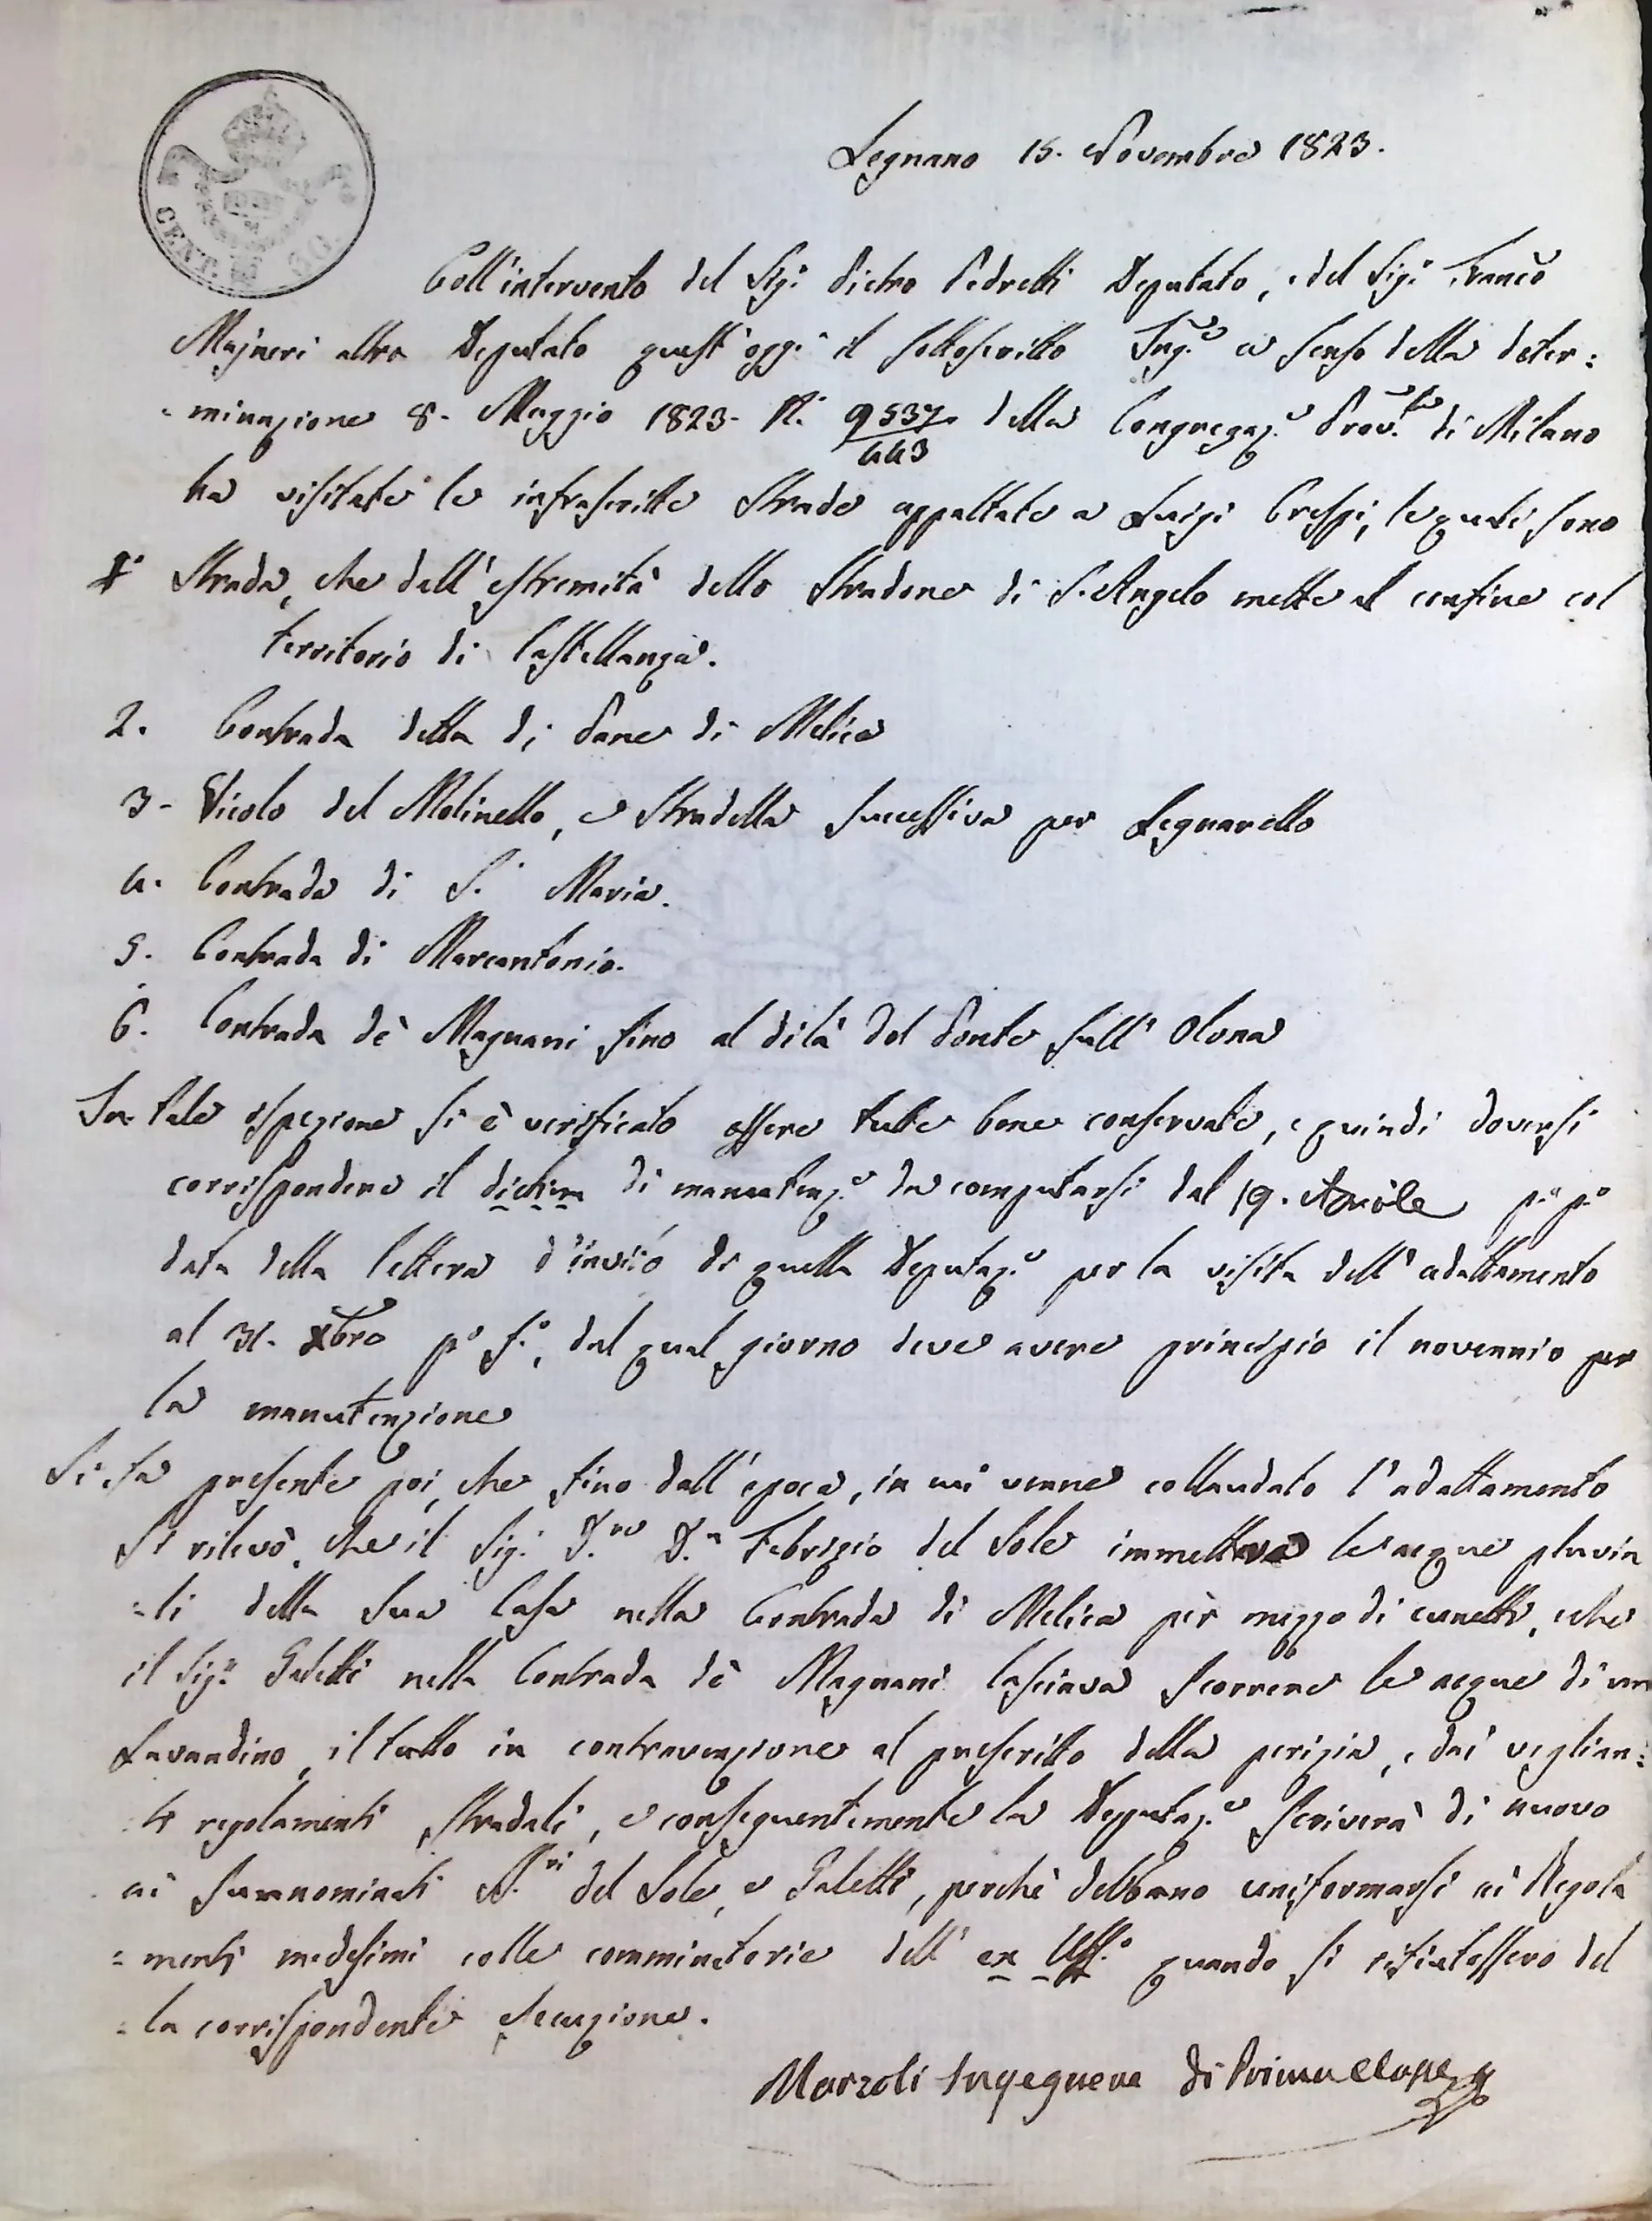 CENT. 30
Legnano 15. Novembre 1823.
Coll'intervento del Sig.r Pietro Pedretti Deputato, e del Sig.r Franc.o
Majneri altro Deputato quest'oggi il sottoscritto Ing.e a senso della deter:
minazione 8. Maggio 1823. N. 9537/443 della Congregaz.e Prov.le di Milano
ha visitate le infrascritte Strade appaltate a Luigi Crespi, le quali sono
1° Strada, che dall'estremità dello Stradone di S. Angelo mette al confine col
territorio di Castellanza.
2. Contrada detta di Pane di Melica
3. Vicolo del Molinello, e Stradella successiva per Legnarello
4. Contrada di S. Maria.
5. Contrada di Marcantonio.
6. Contrada de' Magnani fino al di là del Ponte sull'Olona
In tale ispezione si è verificato essere tutte bene conservate, e quindi doversi
corrispondere il di manutenz.e da computarsi dal 19. Aprile p.o p.o
data della lettera d'invito di quella Deputaz.e per la visita dell'adattamento
al 31. Xbre p.o f.o, dal qual giorno deve avere principio il novennio per
la manutenzione
Si fa presente poi, che fino dall'epoca, in cui venne collaudato l'adattamento
si rilevò, che il Sig. D.n Fabrizio del Sole immetteva le acque pluvia
:li della sua Casa nella Contrada di Melica per mezzo di canetti, e che
il Sig.r Galetti nella Contrada de' Magnani lasciava scorrere le acque di un
Lavandino, il tutto in contravenzione al prescritto della perizia, e dai veglian:
:ti regolamenti stradali, e conseguentemente la Deputaz.e scriverà di nuovo
ai surnominati S.ri del Sole, e Galetti, perchè debbano uniformarsi ai Regola
:menti medesimi colle comminatorie dell'ex Uff.o quando si rifiutassero del
:la corrispondente esecuzione.
Marzoli Ingegnere di Prima Classe